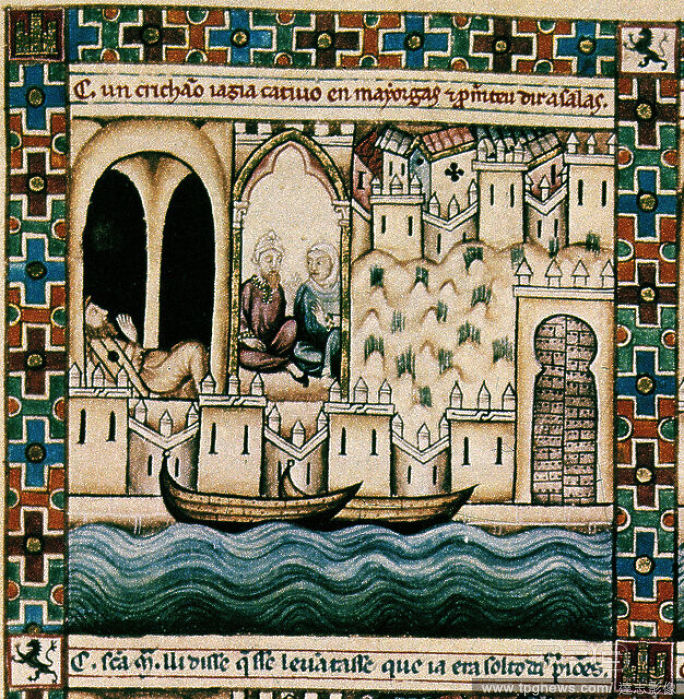 C. un crichão iazia catiuo en mayorgas ⁊ p̃meteu dir a salas.
C. scã m̃. lli disse q̃ sse leuãtasse que ia era solto p̃iões.
www.tpgnews.com 達志影像